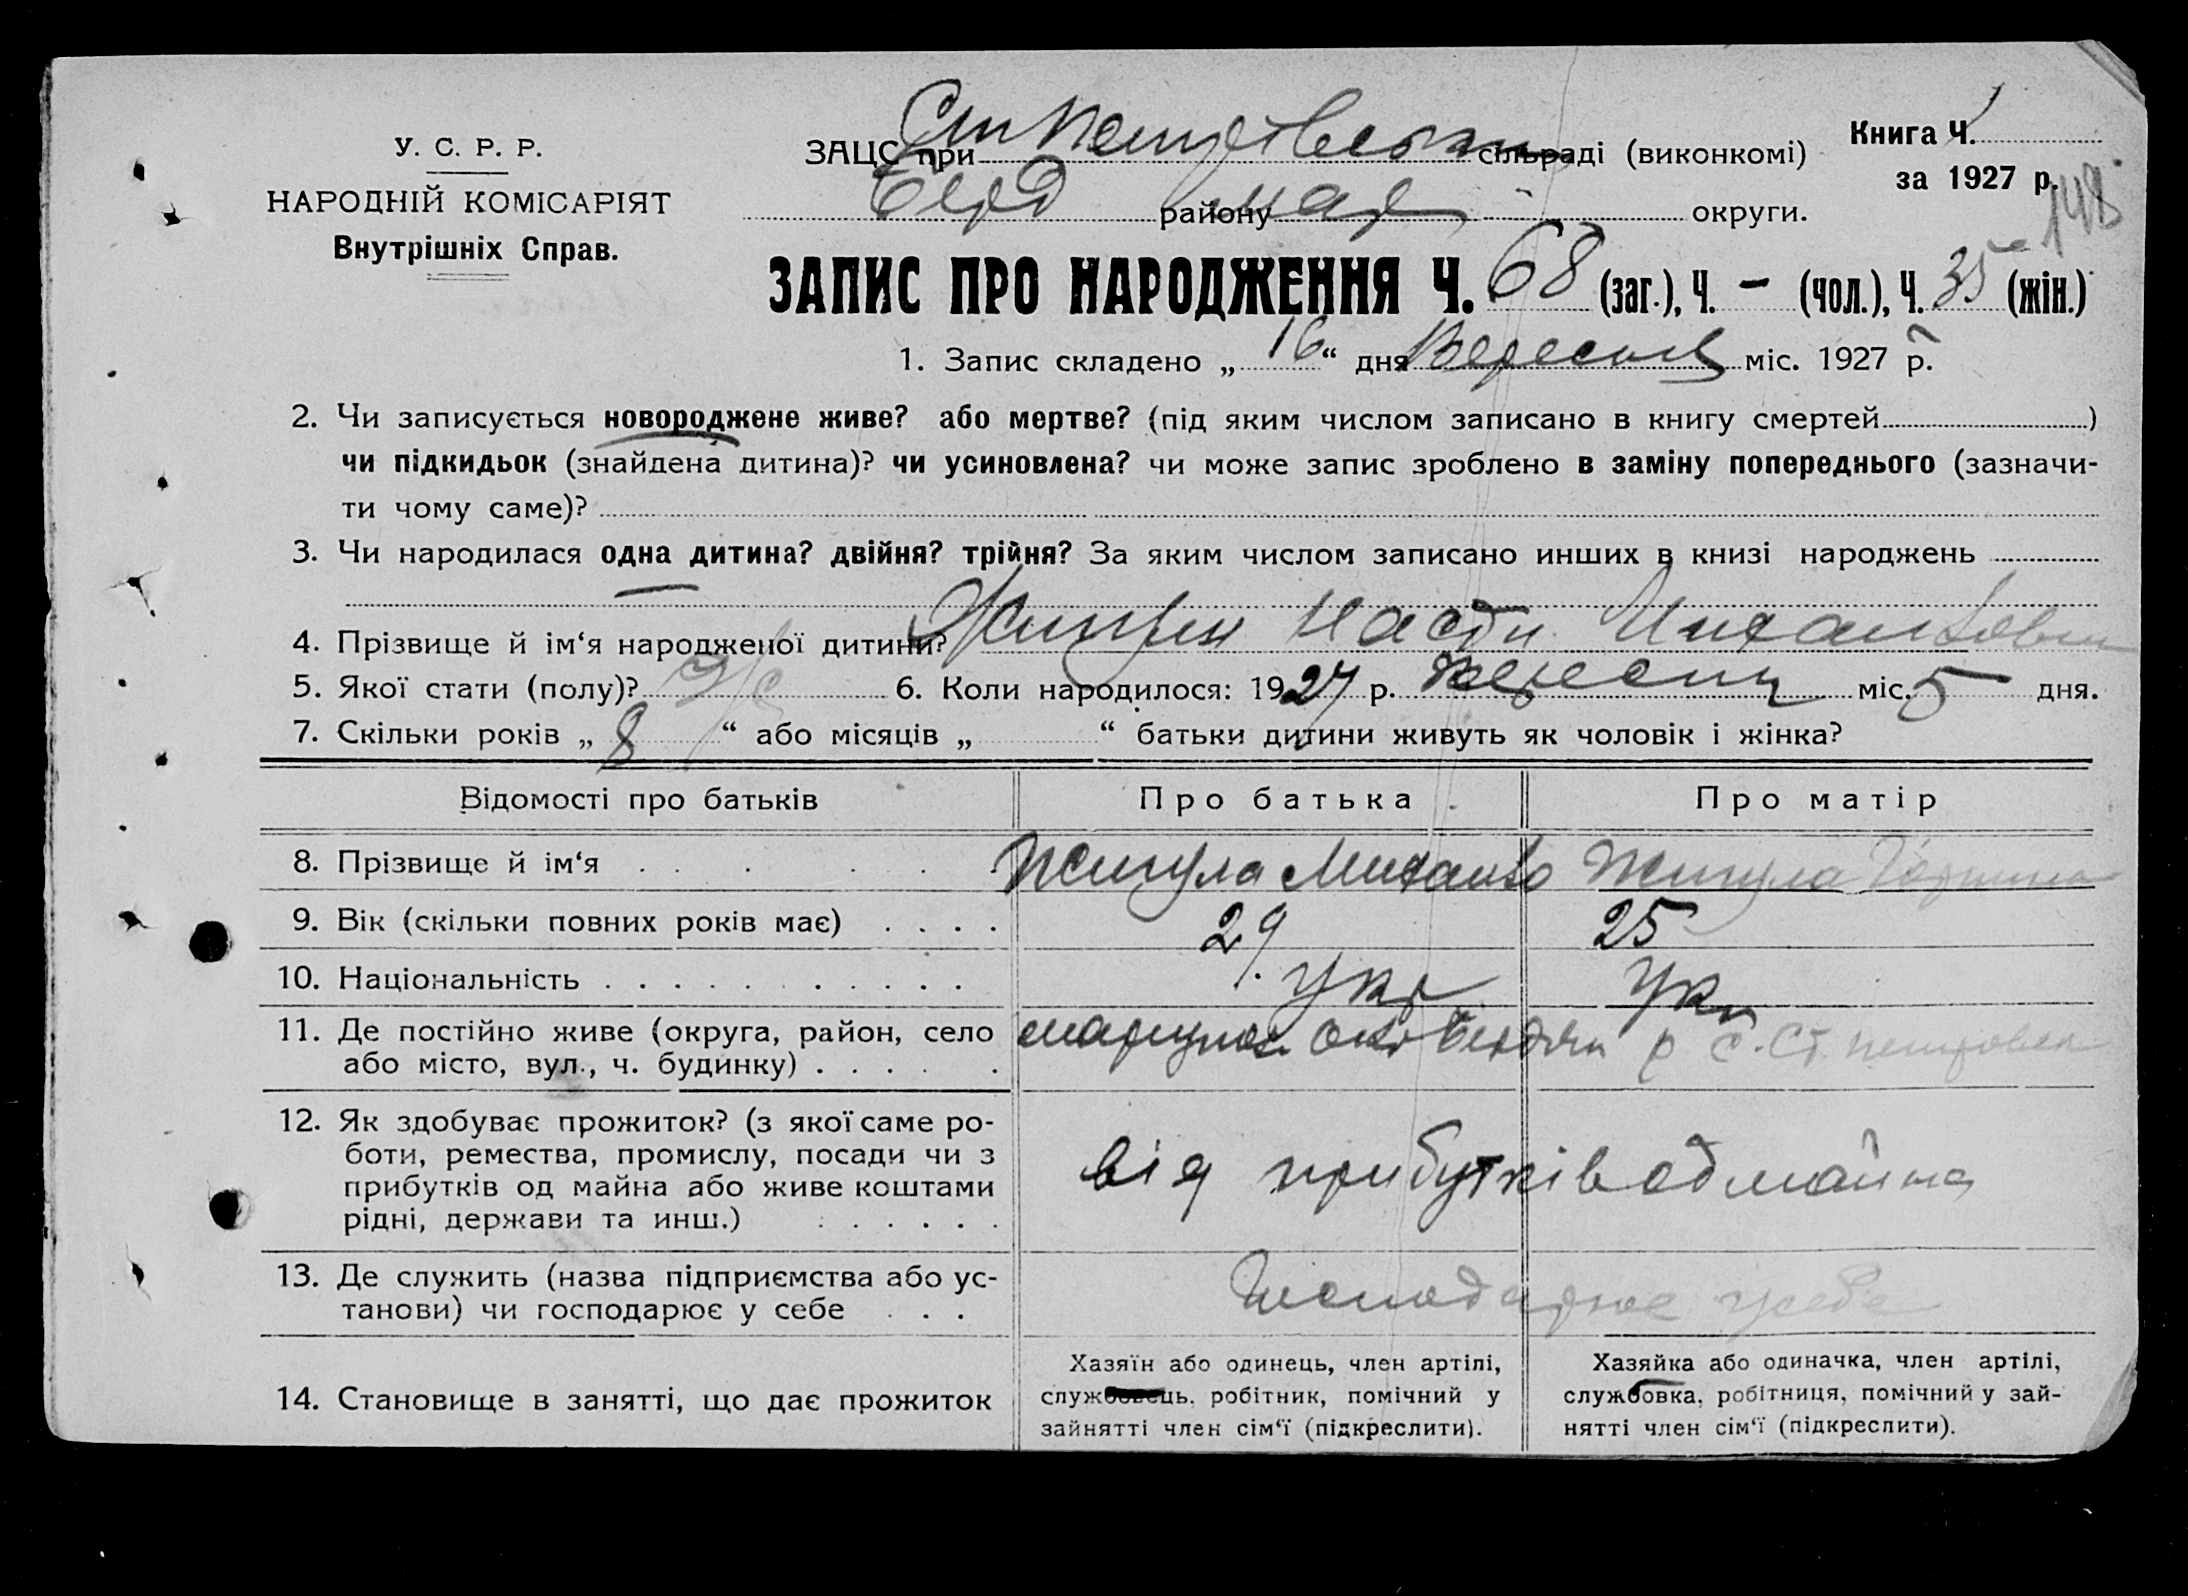 У. С. Р. Р.
НАРОДНІЙ КОМІСАРІЯТ
Внутрішніх Справ.
ЗАЦС при Ст Петровські сільраді (виконкомі)
Берд району мар округи.
Книга Ч. 1
за 1927 р.
148
ЗАПИС ПРО НАРОДЖЕННЯ Ч. 68 (заг.), Ч. – (чол.), Ч. 35 (жін.)
1. Запис складено „ 16 “ дня Вересня міс. 1927 р.
2. Чи записується новороджене живе? або мертве? (під яким числом записано в книгу смертей )
чи підкидьок (знайдена дитина)? чи усиновлена? чи може запис зроблено в заміну попереднього (зазначи-
ти чому саме)?
3. Чи народилася одна дитина? двійня? трійня? За яким числом записано инших в книзі народжень
4. Прізвище й ім‘я народженої дитини? Настя
5. Якої стати (полу)? 6. Коли народилося: 1927 р. вересня міс. 5 дня.
7. Скільки років „ 8 “ або місяців „ “ батьки дитини живуть як чоловік і жінка?
Відомості про батьків Про батька Про матір
8. Прізвище й ім‘я . . . . . . Жигула Михайло Жигула
9. Вік (скільки повних років має) . . . . 29 25
10. Національність . . . . . . . . . . . укр Укр
11. Де постійно живе (округа, район, село
або місто, вул., ч. будинку) . . . . . маріупол окр Бердян р с. Ст. петровка
12. Як здобуває прожиток? (з якої саме ро-
боти, ремества, промислу, посади чи з
прибутків од майна або живе коштами
рідні, держави та инш.) . . . . . . від прибутків од майна
13. Де служить (назва підприємства або ус-
танови) чи господарює у себе . . . Господарює у себе
14. Становище в занятті, що дає прожиток
Хазяїн або одинець, член артілі,
службовець, робітник, помічний у
зайнятті член сім‘ї (підкреслити).
Хазяйка або одиначка, член артілі,
службовка, робітниця, помічний у зай-
нятті член сім‘ї (підкреслити).